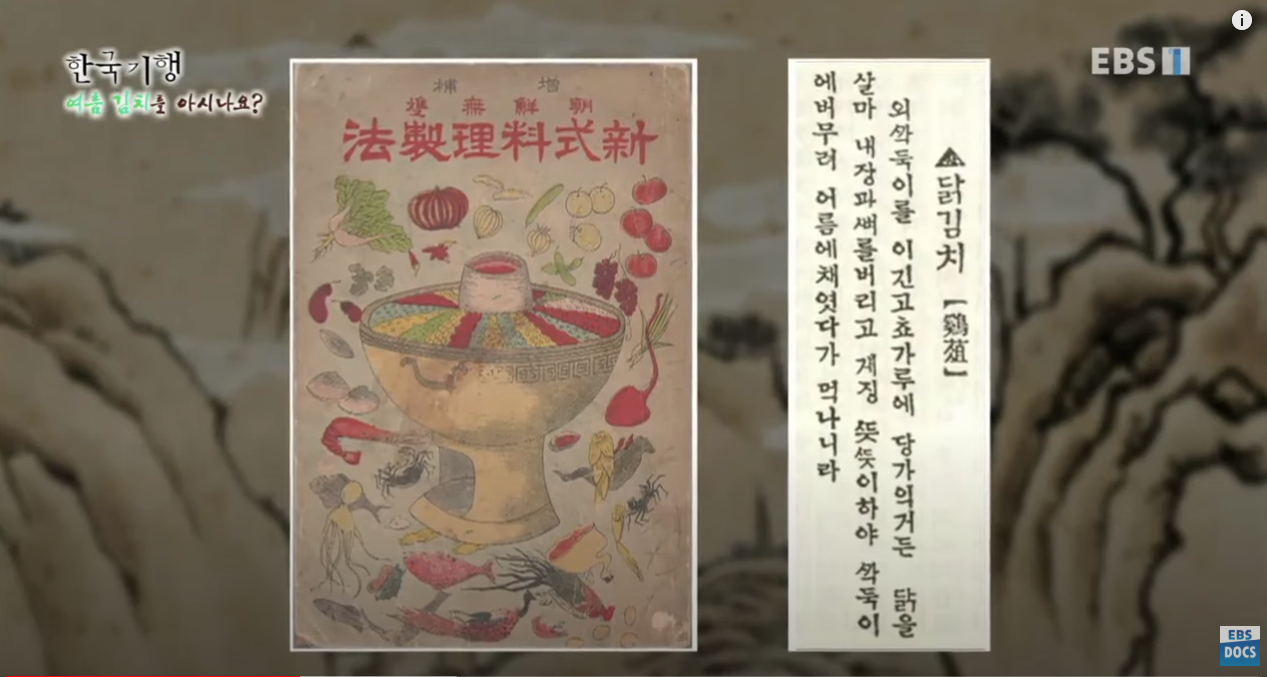 한국기행
여름 김치를 아시나요?
EBS1
增補
朝鮮無雙
新式料理製法
▲닭김치【鷄葅】
외ᄭᅡᆨ둑이를 이긴고쵸가루에 당가익거든 닭을
살마 내장과ᄲᅧ를버리고 게징 ᄯᅳᆺᄯᅳᆺ이하야 ᄭᅡᆨ둑이
에버무려 어름에채엿다가 먹나니라
EBS
DOCS